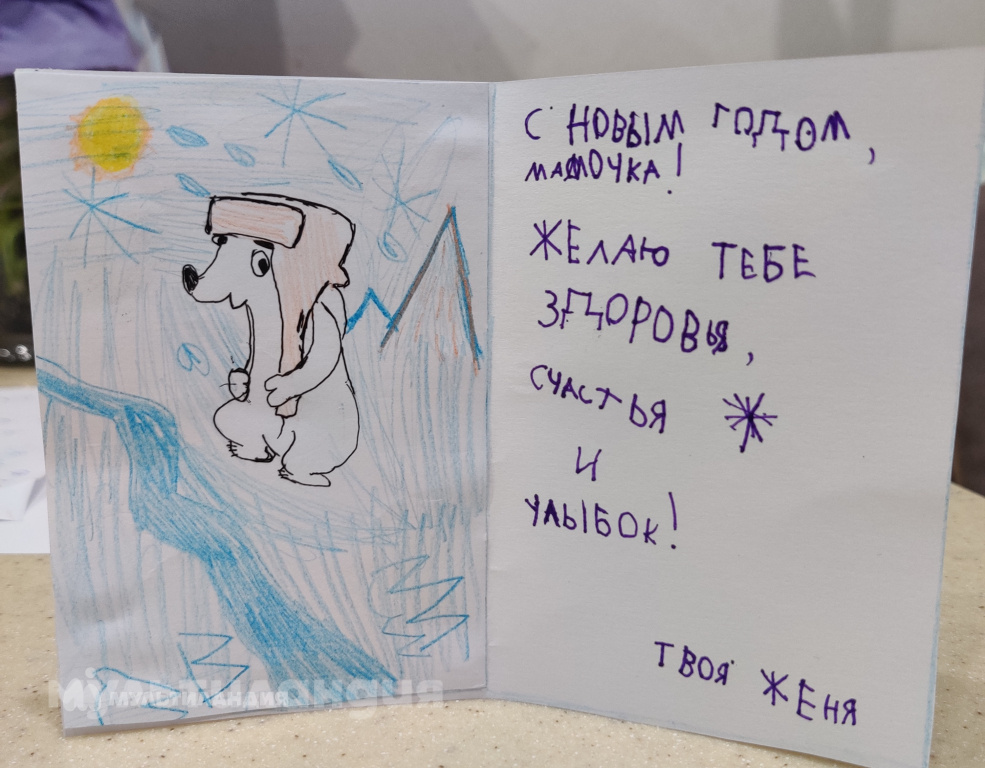 С НОВЫМ ГОДОМ,
МАМОЧКА!
ЖЕЛАЮ ТЕБЕ
ЗДОРОВЬЯ,
СЧАСТЬЯ
И
УЛЫБОК!
ТВОЯ ЖЕНЯ
мультиландия